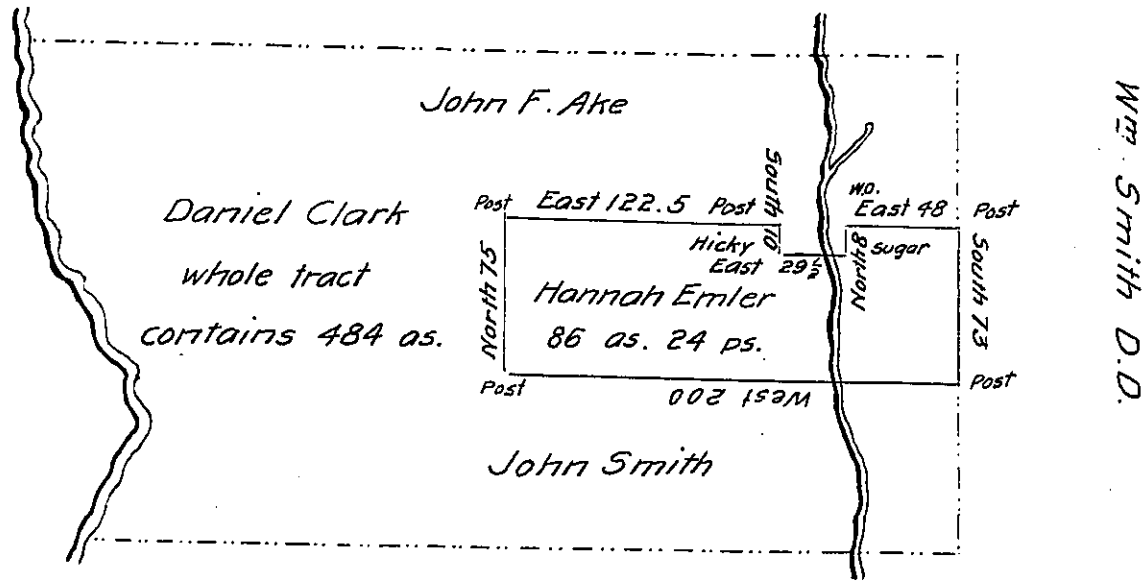 John F. Ake
Wm. Smith D.O.
Daniel Clark
whole tract
contains 484 as.
Post East 122.5 Post
South 10
W.O.
East 48 Post
Hicky
East 29½
North 8
sugar
South 73
North 75
Hannah Emler
86 as. 24 ps.
Post
West 200
Post
John Smith